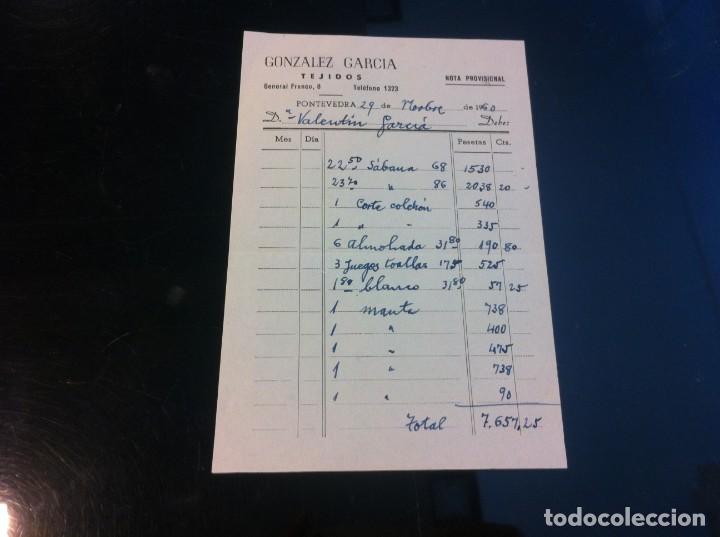 GONZALEZ GARCIA
TEJIDOS
General Franco, 8 Teléfono 1323 NOTA PROVISIONAL
PONTEVEDRA 29 de Novbre de 1960
D.ª Valentín García Debe:
Mes Día Pesetas Cts.
22 50 Sábana 68 1530
23 70 " 86 2038 20
1 Corte colchón 540
1 " " 335
6 Almohada 31 80 190 80
3 Juegos toallas 175 525
1 80 blanco 31 80 57 25
1 manta 738
1 " 400
1 " 475
1 " 738
1 " 90
Total 7.657,25
todocoleccion
todocoleccion.net